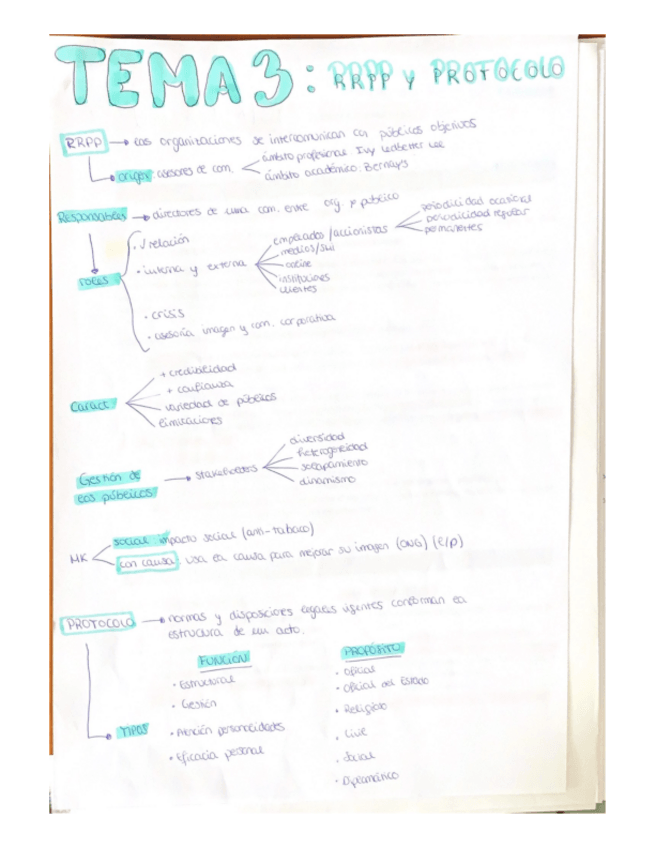 TEMA 3: RRPP y PROTOCOLO
RRPP → las organizaciones se intercomunican con públicos objetivos
origen asesores de com.
ámbito profesional Ivy Ledbetter Lee
ámbito académico: Bernays
Responsables → directores de una com. entre org. y público
roles
· relación
· interna y externa
empleados/accionistas
periodicidad ocasional
periodicidad regular
permanentes
medios/
instituciones
clientes
· crisis
· asesoría imagen y com. corporativa
Caract
+ credibilidad
+ confianza
variedad de públicos
limitaciones
Gestión de los públicos → stakeholders
diversidad
heterogeneidad
solapamiento
dinamismo
MK
social: impacto social (anti-tabaco)
con causa: usa la causa para mejorar su imagen (ONG) (l/p)
PROTOCOLO → normas y disposiciones legales vigentes conforman la
estructura de un acto.
TIPOS
FUNCIÓN
· Estructural
· Gestión
· Atención personalidades
· Eficacia personal
PROPÓSITO
· Oficial
· Oficial del Estado
· Religioso
· Civil
· Social
· Diplomático